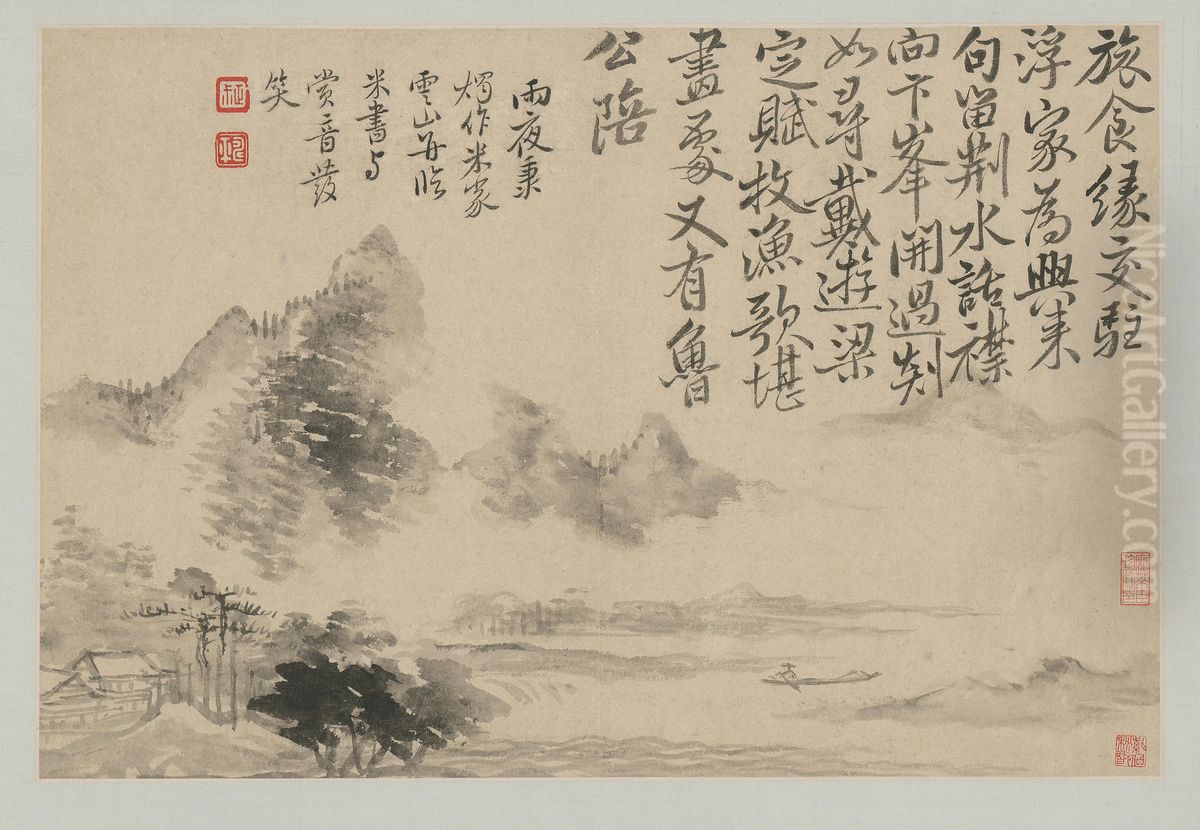 旅食緣交駐
浮家為興來
句留荆水話襟
向卞峯開過剡
如尋戴遊梁
定賦枚漁歌堪
畫處又有魯
公陪
雨夜秉
燭作米家
雲山并臨
米書与
賞音發
笑
NiceArtGallery.com